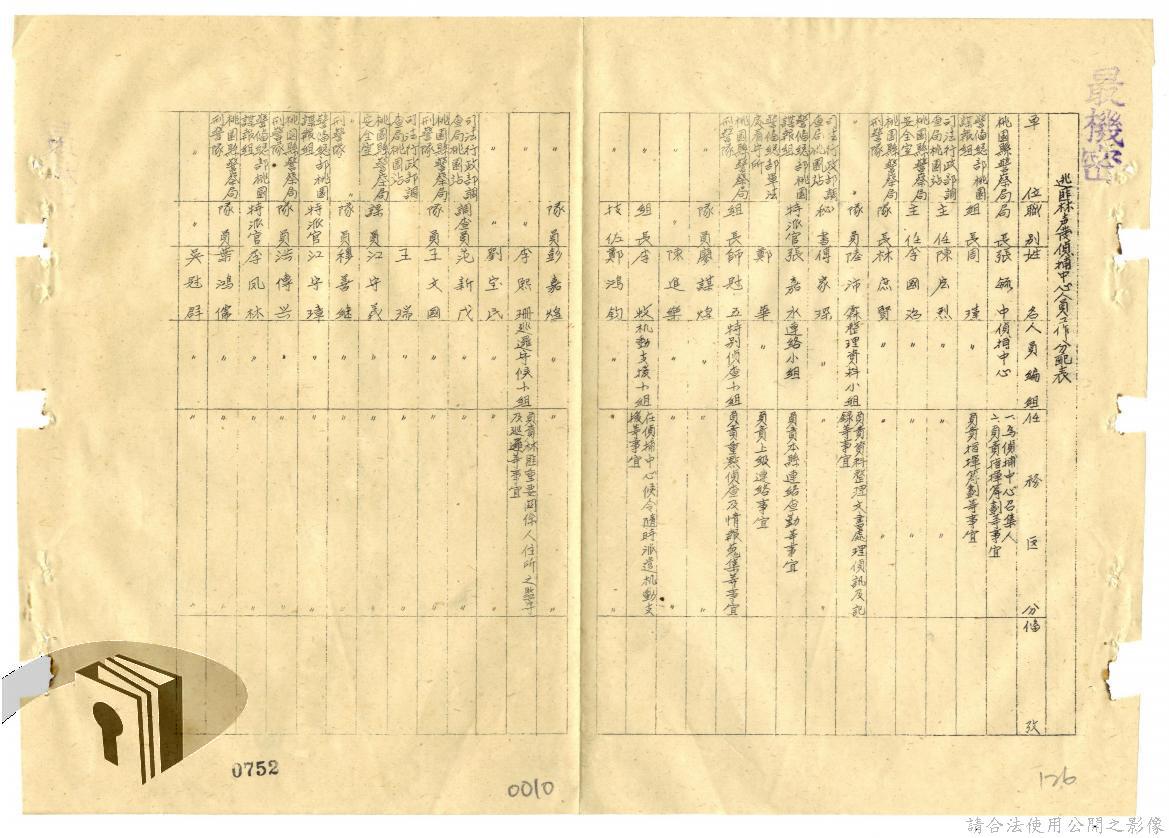 最機密
逃匪林元枝偵捕中心人員工作分配表
單位 職別 姓名 人員編組 任務區分 備攷
桃園縣警察局 局長 張毓中 偵捕中心 一、為偵捕中心召集人 二、負責指揮籌劃等事宜
警備總部桃園諜報組 組長 周瑾 〃 負責指揮籌劃等事宜
司法行政部調查局桃園站 主任 陳庶烈 〃 〃
桃園縣警察局安全室 主任 李國治 〃 〃
桃園縣警察局刑警隊 隊長 林庶賢 〃 〃
〃 隊員 陸沛霖 整理資料小組 負責資料整理文書處理偵訊及記錄等事宜
司法行政部調查局桃園站 秘書 傅家琛 〃 〃
警備總部桃園諜報組 特派官 張嘉水 連絡小組 負責本縣連絡查勤等事宜
警備總部軍法處看守所 鄭華 〃 負責上級連絡事宜
桃園縣警察局刑警隊 組長 師冠五 特別偵查小組 負責重點偵查及情報蒐集等事宜
〃 隊員 廖謀煌 〃 〃
〃 〃 陳進樂 〃 〃
〃 組長 李 机動支援小組 在偵捕中心候令隨時派遣机動支援等事宜
〃 技佐 鄭鴻鈞 〃 〃
〃 隊員 彭嘉煌 〃 〃
〃 〃 李熙珊 巡邏守候小組 負責林匪重要関係人住所之監守及巡邏等事宜
〃 〃 劉宝民 〃 〃
司法行政部調查局桃園站 調查員 沌新戊 〃 〃
桃園縣警察局刑警隊 隊員 王文國 〃 〃
司法行政部調查局桃園站 王瑞 〃 〃
桃園縣警察局安全室 課員 江守義 〃 〃
〃 刑警隊 隊員 穆善继 〃 〃
警備總部桃園諜報組 特派官 江守璋 〃 〃
桃園縣警察局刑警隊 隊員 洪傳興 〃 〃
警備總部桃園諜報組 特派官 李凤林 〃 〃
桃園縣警察局刑警隊 隊員 葉鴻儒 〃 〃
〃 〃 吳冠群 〃 〃
0752
0010
126
請合法使用公開之影像